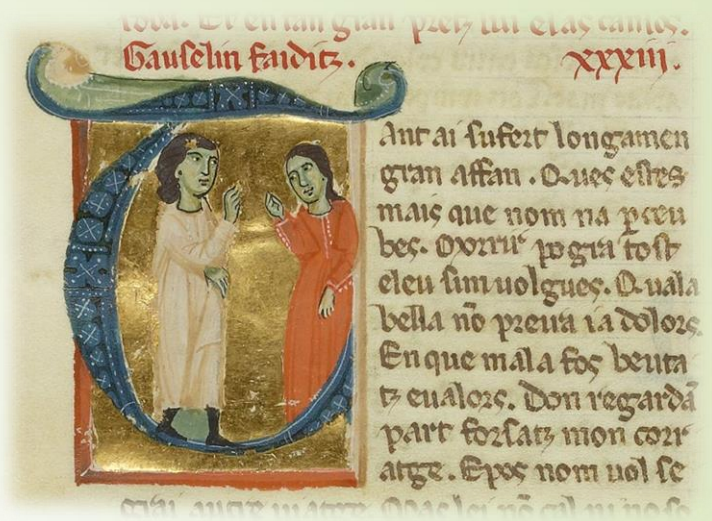 toba. Et en lan gran pretz lui e las cansos.
Gauselin faiditz. xxxiii.
Ant ai sufert longamen
gran affan. Q. ues estes
mais que nom na p̱ceu
bes. O morrir pogra tost
eleu sim uolgues. Q. uala
bella nõ preira ia dolors.
En que mala fos beuta
tz eualors. Don regardã
part forsatz mon corr
atge. E pos nom uol se